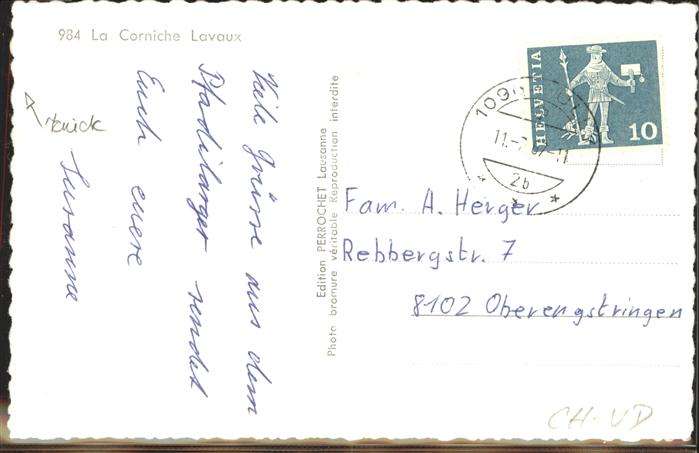 984 La Corniche Lavaux
Viele Grüsse aus dem
Pfadilager sendet
Euch euere
Susanne
Edition PERROCHET Lausanne
Photo bromure véritable Reproduction interdite
HELVETIA
10
2b
Fam. A. Herger
Rebbergstr. 7
8102 Oberengstringen
CH-VD